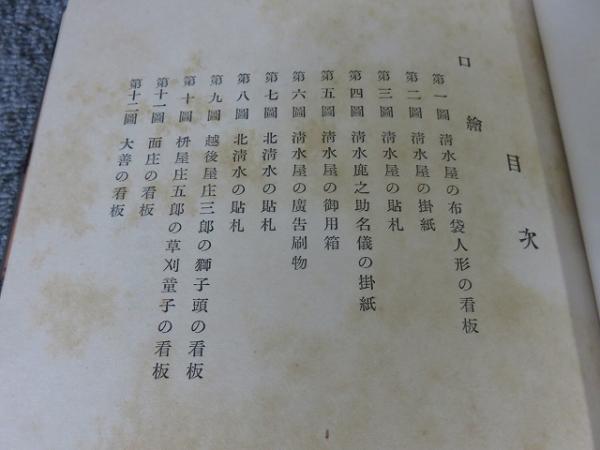 目次
口繪
第一圖 淸水屋の布袋人形の看板
第二圖 淸水屋の掛紙
第三圖 淸水屋の貼札
第四圖 淸水鹿之助名儀の掛紙
第五圖 淸水屋の御用箱
第六圖 淸水屋の廣告刷物
第七圖 北淸水の貼札
第八圖 北淸水の貼札
第九圖 越後屋庄三郎の獅子頭の看板
第十圖 枡屋庄五郎の草刈童子の看板
第十一圖 面庄の看板
第十二圖 大善の看板